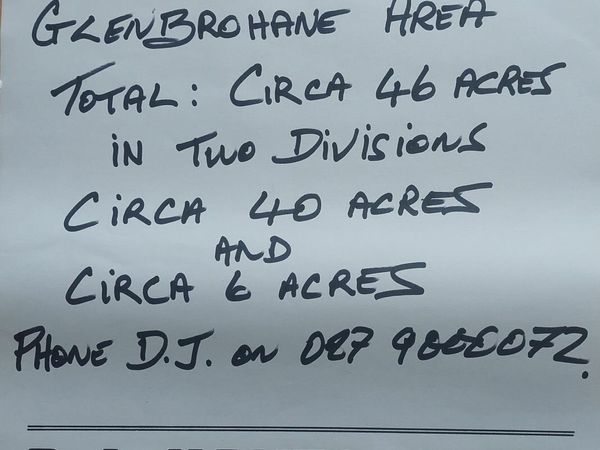 GLENBROHANE AREA
TOTAL: CIRCA 46 ACRES
IN TWO DIVISIONS
CIRCA 40 ACRES
AND
CIRCA 6 ACRES
PHONE D.J. ON